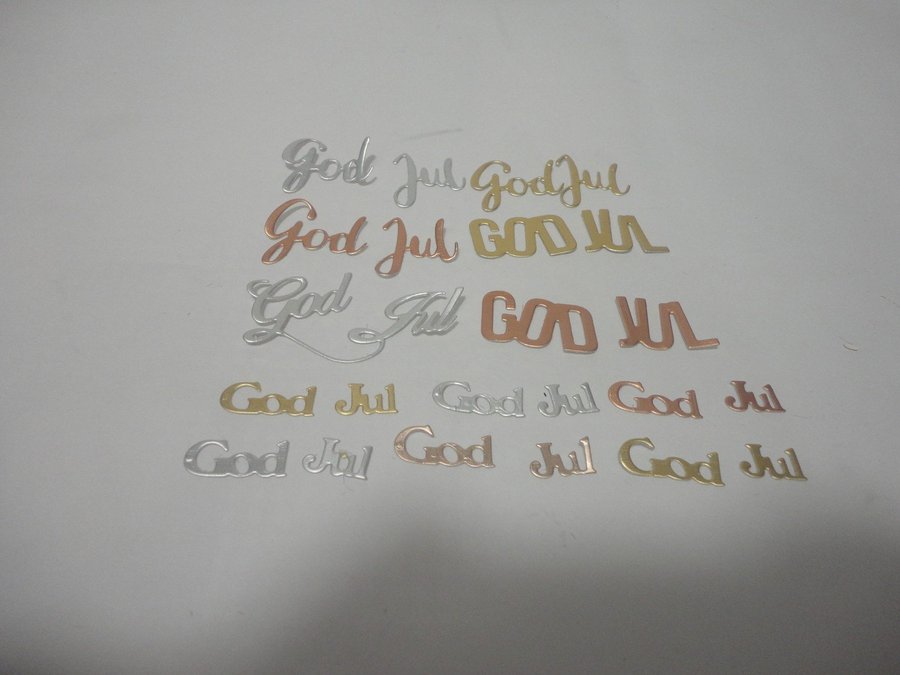 God Jul God Jul
God Jul GOD JUL
God Jul GOD JUL
God Jul God Jul God Jul
God Jul God Jul God Jul